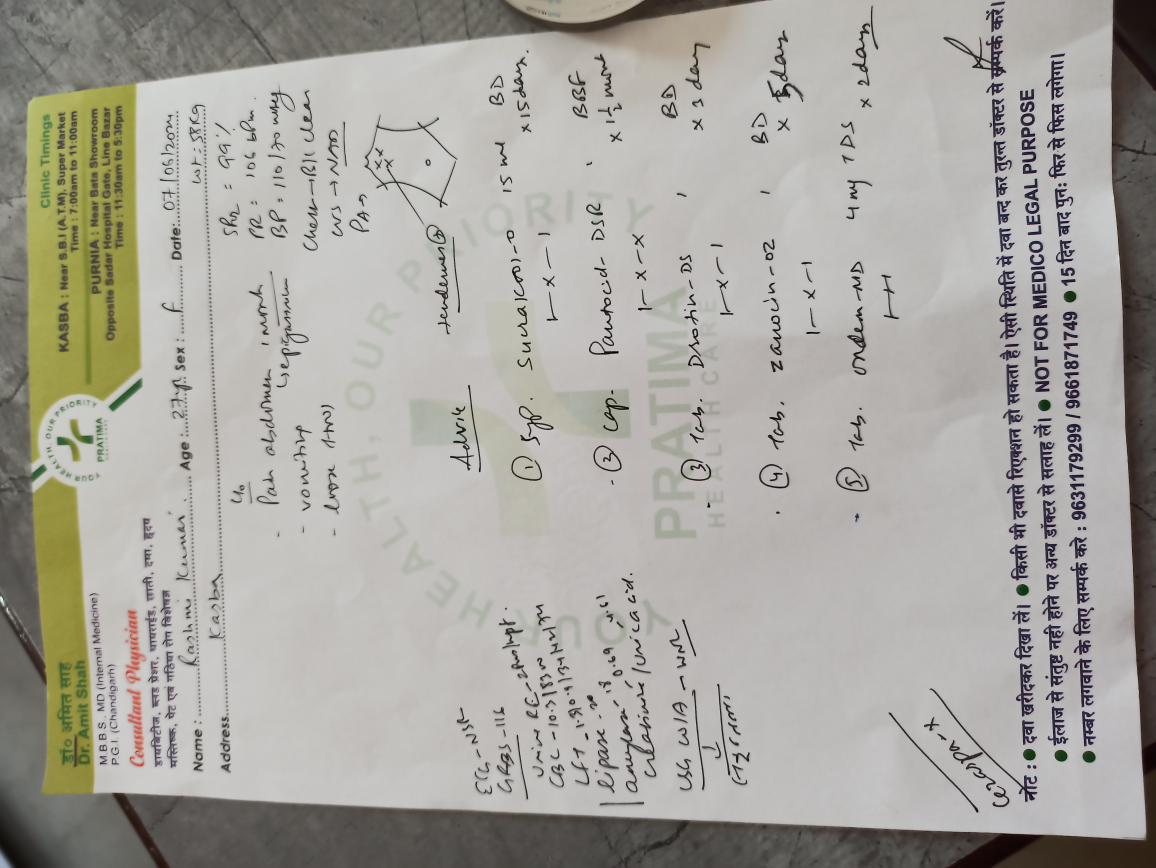 डॉ० अमित साह
Dr. Amit Shah
M.B.B.S., MD (Internal Medicine)
P.G.I. (Chandigarh)
Consultant Physician
डायबिटीज, ब्लड प्रेशर, थायराईड, छाती, दमा, हृदय
मस्तिष्क, पेट एवं गठिया रोग विशेषज्ञ
YOUR HEALTH, OUR PRIORITY
PRATIMA
HEALTH CARE
Clinic Timings
KASBA : Near S.B.I (A.T.M), Super Market
Time : 7:00am to 11:00am
PURNIA : Near Bata Showroom
Opposite Sadar Hospital Gate, Line Bazar
Time : 11:30am to 5:30pm
Name : Rashmi Kumari Age : 27 yr Sex : F Date: 07/06/202
Address Kasba wt: 58kg
c/o
- Pain abdomen 1 month
↳ epigastrium
- vomiting
- loose
SPO2 = 99%
PR = 106 bpm.
BP = 110/70 mmHg
Chest → B/L clear
CVS → NAD
PA →
tenderness
ECG - NSR
GRBS - 116
Urine RE -
CBC - 10.3
LFT -
lipase -
amylase, 0.69
creatinine/uric acid.
USG W/A - WNL
Advice
① Syp. Sucralcool-O 15 ml BD
1 - x - 1 x 15 days.
② Cap. Pantocid-DSR, BBF
1 - x - x x 1½ month
③ Tab. Drotin-DS, BD
1 - x - 1 x 3 day
④ Tab. Zanocin-OZ, BD
1 - x - 1 x 5 days
⑤ Tab. Ondem-MD 4mg TDS x 2 days
1-1-1
नोट : ● दवा खरीदकर दिखा लें। ● किसी भी दवासे रिएक्शन हो सकता है। ऐसी स्थिति में दवा बन्द कर तुरन्त डॉक्टर से सम्पर्क करें।
● ईलाज से संतुष्ट नही होने पर अन्य डॉक्टर से सलाह लें। ● NOT FOR MEDICO LEGAL PURPOSE
● नम्बर लगवाने के लिए सम्पर्क करे : 9631179299 / 9661871749 ● 15 दिन बाद पुनः फिर से फिस लगेगा।